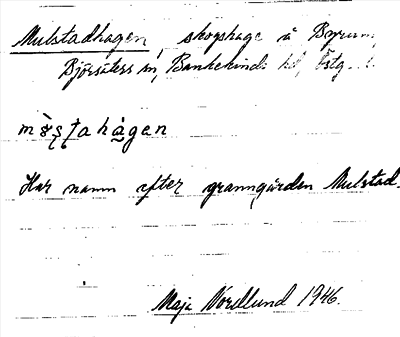 Mulstadhagen, skogshage å Byrum,
Björsäters sn, Bankekinds hd, Östg.
hagen
Har namn efter granngården Mulstad.
Maja Nordlund 1946.